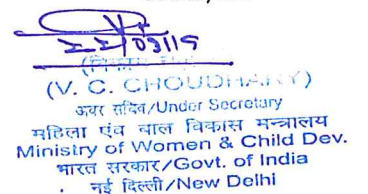 22/03/15
(V. C. CHOUDHARY)
अवर सचिव/Under Secretary
महिला एंव बाल विकास मन्त्रालय
Ministry of Women & Child Dev.
भारत सरकार/Govt. of India
नई दिल्ली/New Delhi